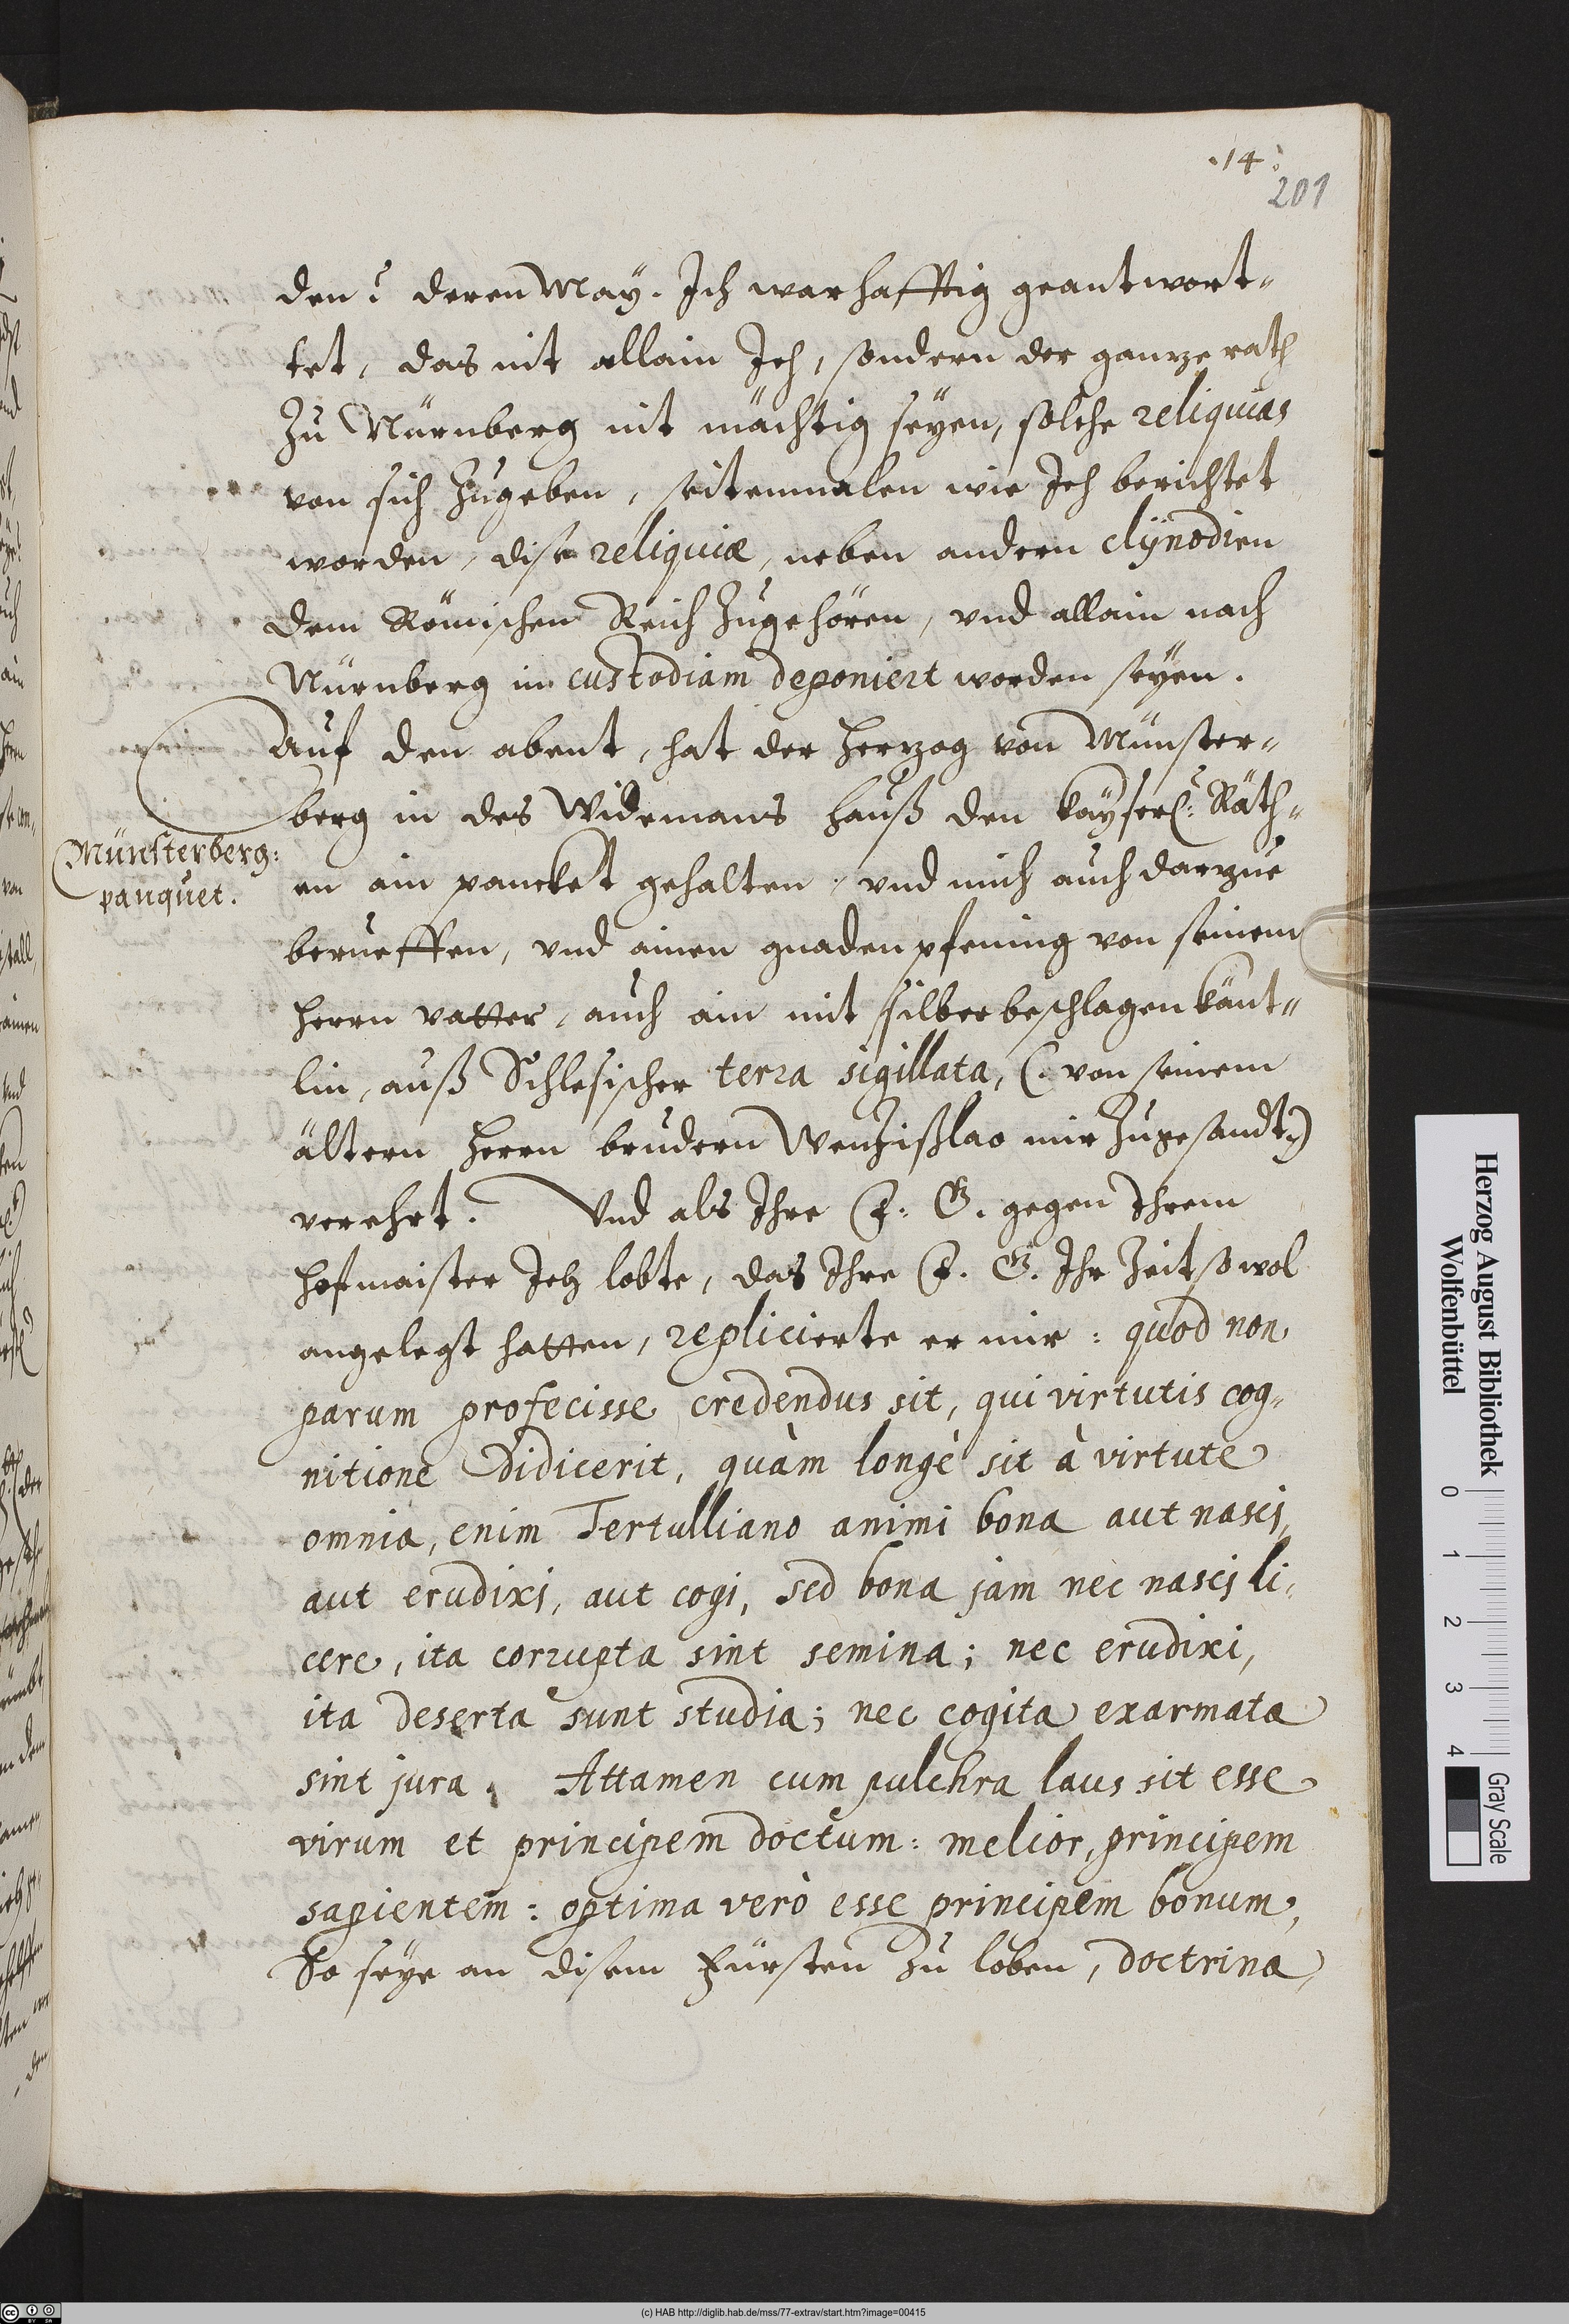 .14.
201
den? deren May. Ich warhafftig geantwort-
tet, das nit allain Ich, sondern der gantze rath
Zu Nürnberg nit mächtig seyen, solche reliquias
von sich Zugeben, seitenmalen wie Ich berichtet
worden, dise reliquiæ, neben andern clÿnodien
dem Römischen Reich Zugehören, vnd allain nach
Nürnberg in custodiam deponiert worden seyen.
Auf den abent, hat der Hertzog von Münster-
berg in des Widemans Hauß den kayserl: Räth-
Münsterberg:
panquet.
en ain pancket gehalten, vnd mich auch dartzue
berueffen, vnd ainen gnadenpfening von seinem
Herrn vatter, auch ain mit silber beschlagen känt-
lin, auß Schlesischer terra sigillata, (. von seinem
ältern Herrn brudern Wenzißlao mir Zugesandt.)
verehrt. Vnd als Ihre F: G. gegen Ihrem
Hofmaister Ich lobte, das Ihre F. G. Ihr Zeit so wol
angelegt hatten, replicierte er mir: quod non
parum profecisse credendus sit, qui virtutis cog-
nitione didicerit, quàm longè sit à virtute
omnia, enim Tertulliano animi bona aut nasci,
aut erudixi, aut cogi, sed bona jam nec nasci li-
cere, ita corrupta sint semina; nec erudixi,
ita deserta sunt studia; nec cogita exarmata
sint jura. Attamen cum pulchra laus sit esse
virum et principem doctum: melior, principem
sapientem: optima verò esse principem bonum,
So seye an disem Fürsten Zu loben, doctrina,
Herzog August Bibliothek
Wolfenbüttel
0 1 2 3 4
Gray Scale
(c) HAB http://diglib.hab.de/mss/77-extrav/start.htm?image=00415